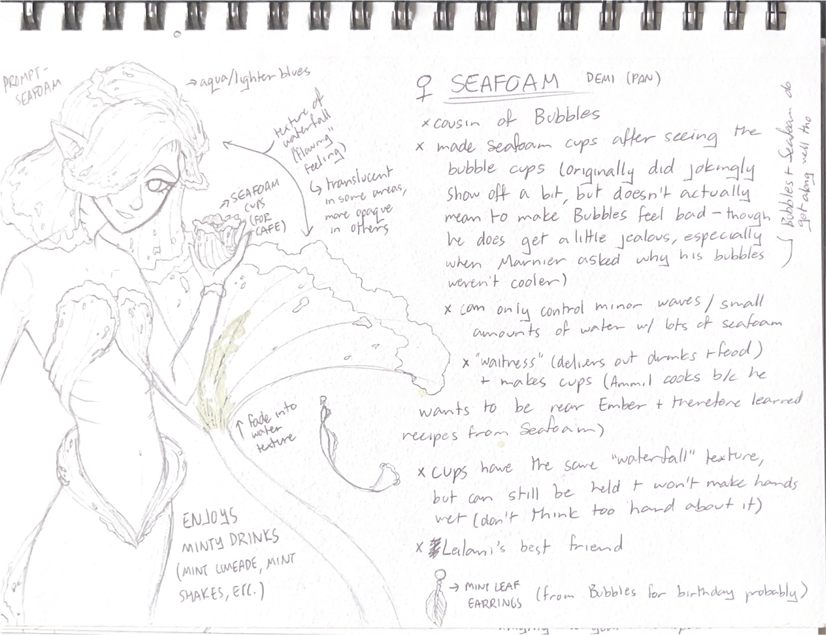 PROMPT-
SEAFOAM
→ aqua/lighter blues
texture of
waterfall
("flowing"
feeling)
↳ translucent
in some areas,
more opaque
in others
→ SEAFOAM
CUPS
(FOR
CAFE)
↑ fade into
water
texture
ENJOYS
MINTY DRINKS
(MINT LIMEADE, MINT
SHAKES, ETC.)
♀ SEAFOAM DEMI (PAN)
× cousin of Bubbles
× made seafoam cups after seeing the
bubble cups (originally did jokingly
show off a bit, but doesn't actually
mean to make Bubbles feel bad - though
he does get a little jealous, especially
when Marnier asked why his bubbles
weren't cooler)
↳ Bubbles + Seafoam do
get along well tho
× can only control minor waves / small
amounts of water w/ lots of seafoam
× "waitress" (delivers out drinks + food)
+ makes cups (Ammil cooks b/c he
wants to be near Ember + therefore learned
recipes from Seafoam)
× cups have the same "waterfall" texture,
but can still be held + won't make hands
wet (don't think too hard about it)
× Leilani's best friend
→ MINT LEAF
EARRINGS (from Bubbles for birthday probably)